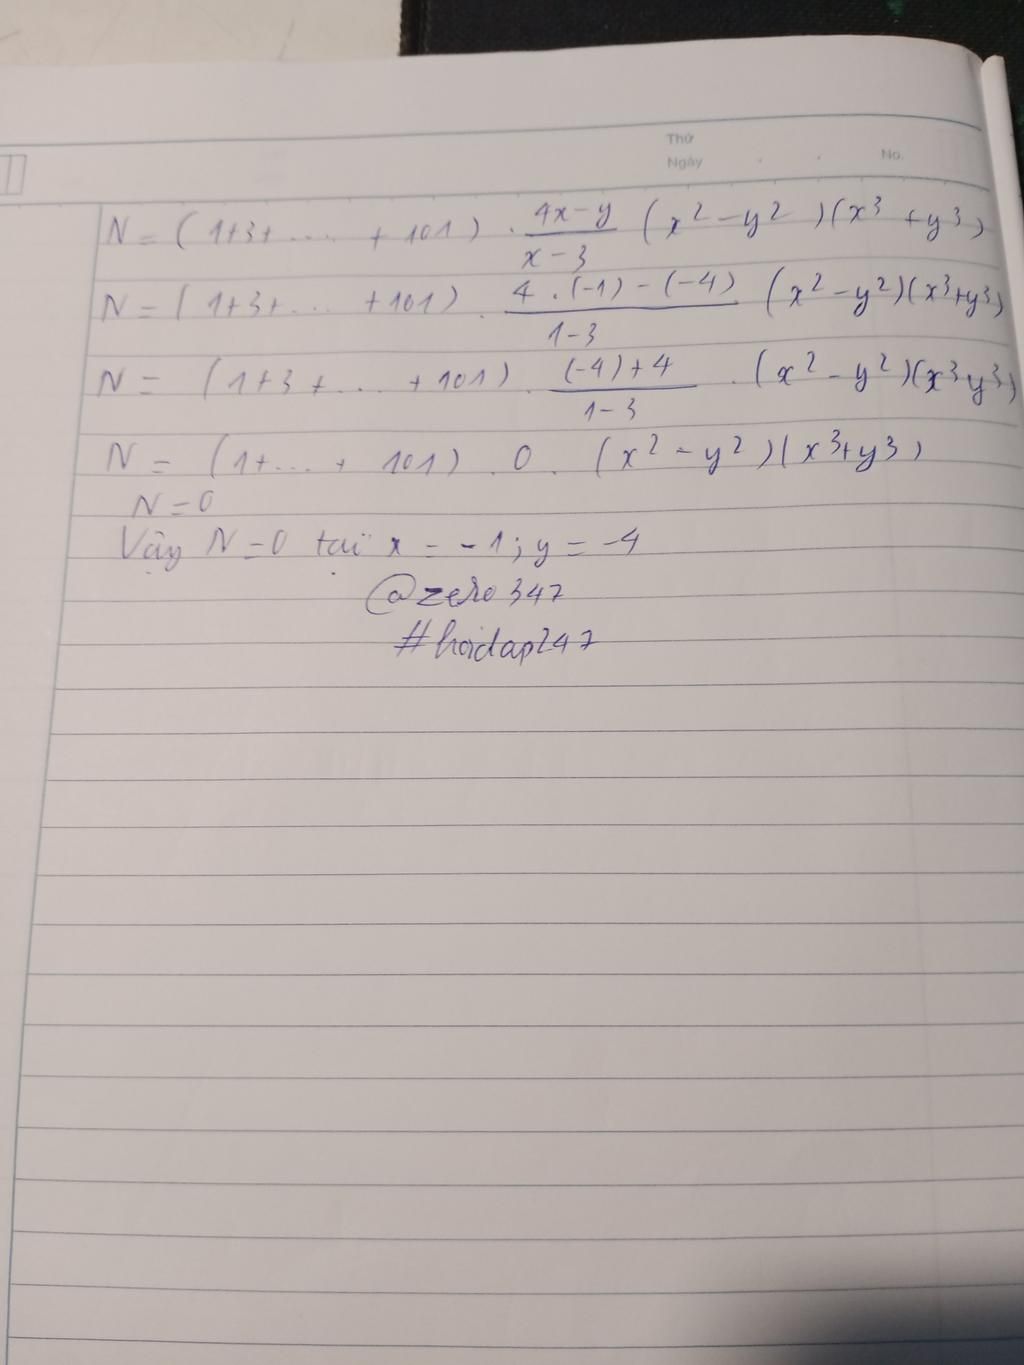 Thứ
Ngày No.
N = ( 1+3+ .... + 101 ) . \frac{4x-y}{x-3} (x² - y²)(x³ + y³)
N = ( 1+3+ ... +101) . \frac{4.(-1)-(-4)}{1-3} (x² - y²)(x³+y³)
N = (1+3 + ... + 101) . \frac{(-4)+4}{1-3} . (x² - y²)(x³ y³)
N = (1+...+ 101) . 0 . (x² - y²)(x³+y³)
N = 0
Vậy N = 0 tại x = -1 ; y = -4
@zero347
#hoidap247